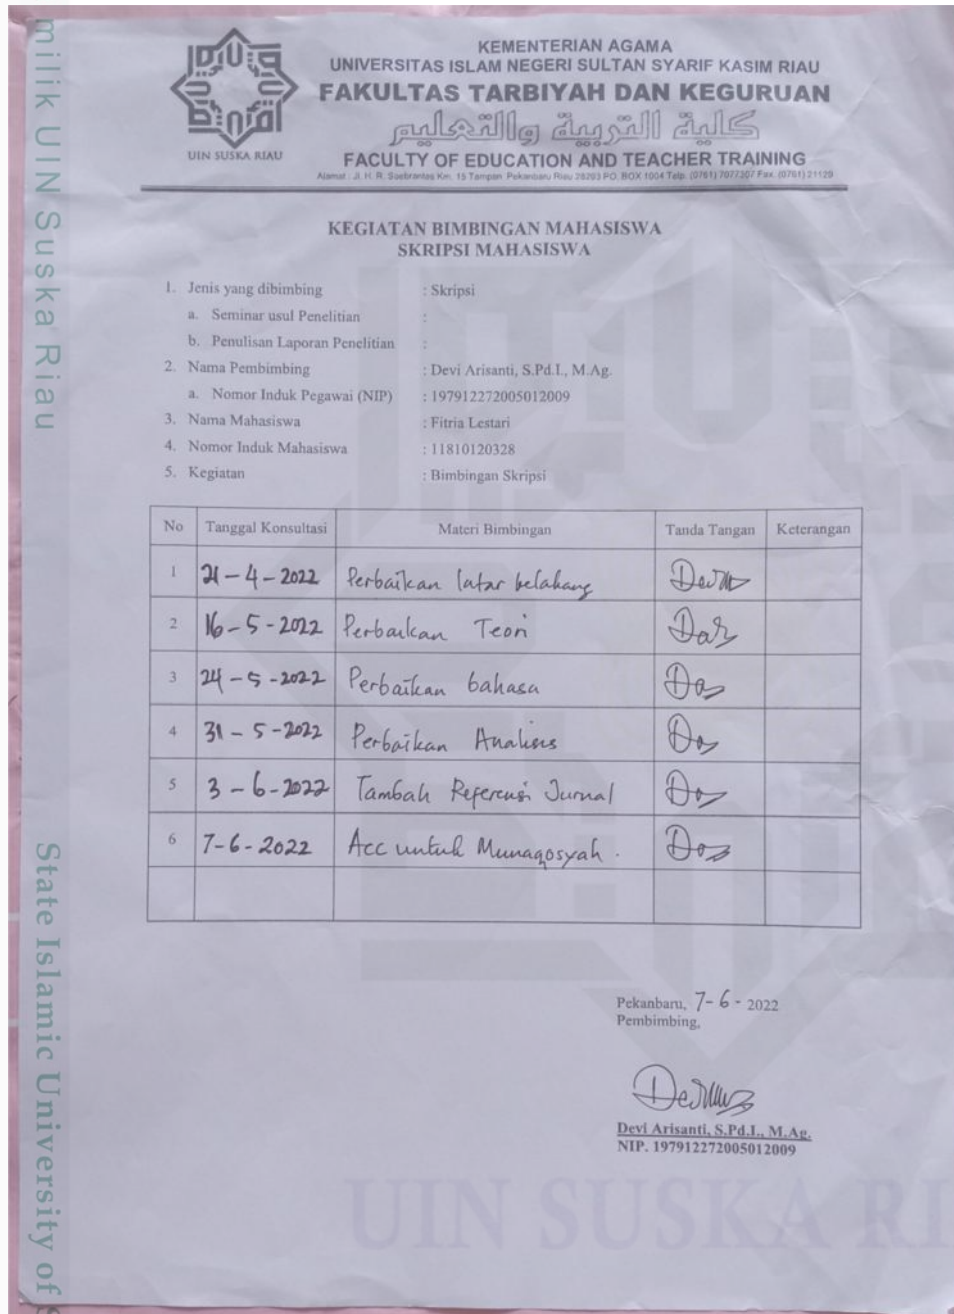 milik UIN Suska Riau
State Islamic University of S
UIN SUSKA RIAU
KEMENTERIAN AGAMA
UNIVERSITAS ISLAM NEGERI SULTAN SYARIF KASIM RIAU
FAKULTAS TARBIYAH DAN KEGURUAN
كلية التربية والتعليم
FACULTY OF EDUCATION AND TEACHER TRAINING
Alamat : Jl. H. R. Soebrantas Km. 15 Tampan Pekanbaru Riau 28293 PO. BOX 1004 Telp. (0761) 7077307 Fax. (0761) 21129
KEGIATAN BIMBINGAN MAHASISWA
SKRIPSI MAHASISWA
1. Jenis yang dibimbing : Skripsi
a. Seminar usul Penelitian :
b. Penulisan Laporan Penelitian :
2. Nama Pembimbing : Devi Arisanti, S.Pd.I., M.Ag.
a. Nomor Induk Pegawai (NIP) : 197912272005012009
3. Nama Mahasiswa : Fitria Lestari
4. Nomor Induk Mahasiswa : 11810120328
5. Kegiatan : Bimbingan Skripsi
No Tanggal Konsultasi Materi Bimbingan Tanda Tangan Keterangan
1 21-4-2022 Perbaikan latar belakang
2 16-5-2022 Perbaikan Teori
3 24-5-2022 Perbaikan bahasa
4 31-5-2022 Perbaikan Analisis
5 3-6-2022 Tambah Referensi Jurnal
6 7-6-2022 Acc untuk Munaqosyah.
Pekanbaru, 7-6-2022
Pembimbing,
Devi Arisanti, S.Pd.I., M.Ag.
NIP. 197912272005012009
UIN SUSKA RI